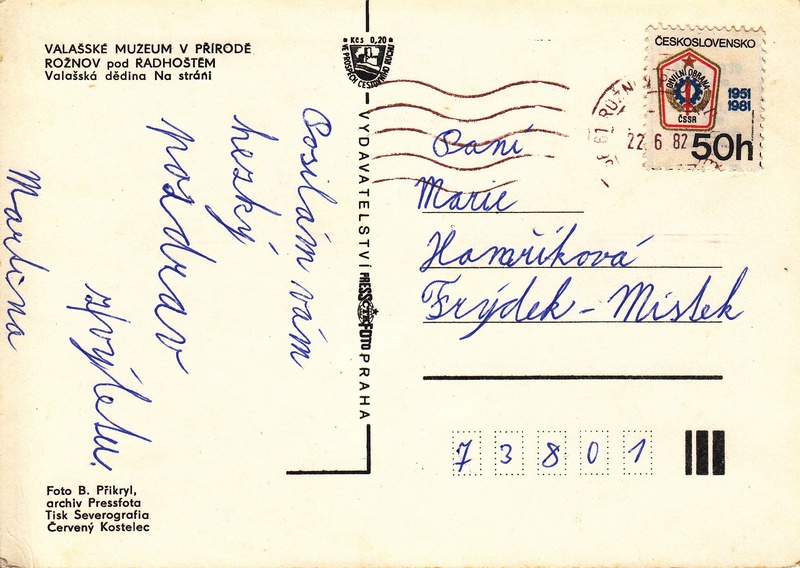 VALAŠSKÉ MUZEUM V PŘÍRODĚ
ROŽNOV pod RADHOŠTĚM
Valašská dědina Na stráni
Posílám vám
hezký
pozdrav
z výletu.
Martina
Foto B. Přikryl,
archiv Pressfota
Tisk Severografia
Červený Kostelec
Kčs 0,20
VE PROSPĚCH CESTOVNÍHO RUCHU
VYDAVATELSTVÍ PRESSFOTO PRAHA
ČESKOSLOVENSKO
CIVILNÍ OBRANA
ČSSR
1951
1981
50h
22. 6 82
Paní
Marie
Frýdek - Místek
73801